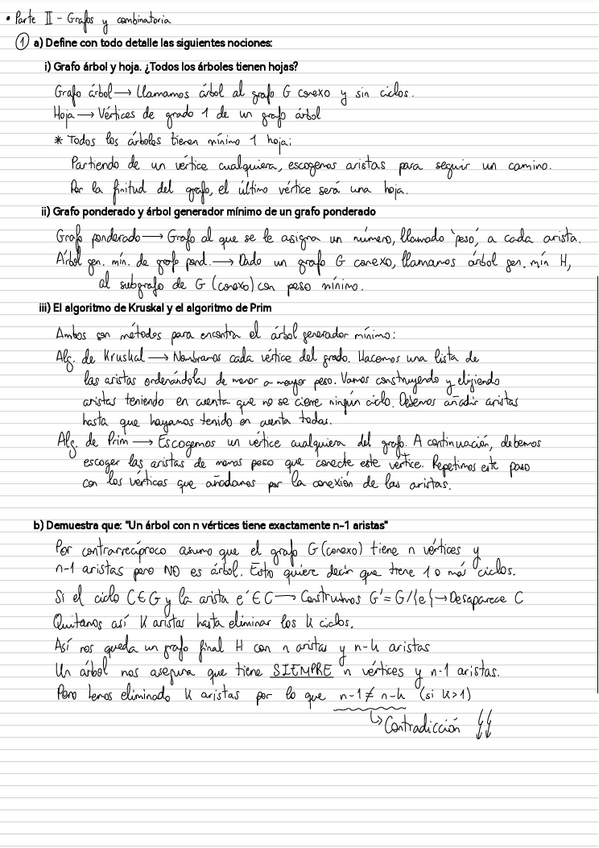 • Parte II - Grafos y combinatoria
1 a) Define con todo detalle las siguientes nociones:
i) Grafo árbol y hoja. ¿Todos los árboles tienen hojas?
Grafo árbol → Llamamos árbol al grafo G conexo y sin ciclos.
Hoja → Vértices de grado 1 de un grafo árbol
* Todos los árboles tienen mínimo 1 hoja:
Partiendo de un vértice cualquiera, escogemos aristas para seguir un camino.
Por la finitud del grafo, el último vértice será una hoja.
ii) Grafo ponderado y árbol generador mínimo de un grafo ponderado
Grafo ponderado → Grafo al que se le asigna un número, llamado 'peso', a cada arista.
Árbol gen. mín. de grafo pond. → Dado un grafo G conexo, llamamos árbol gen. mín H,
al subgrafo de G (conexo) con peso mínimo.
iii) El algoritmo de Kruskal y el algoritmo de Prim
Ambos son métodos para encontrar el árbol generador mínimo:
Alg. de Kruskal → Nombramos cada vértice del grado. Hacemos una lista de
las aristas ordenándolas de menor a mayor peso. Vamos construyendo y elijiendo
aristas teniendo en cuenta que no se cierre ningún ciclo. Debemos añadir aristas
hasta que hayamos tenido en cuenta todas.
Alg. de Prim → Escogemos un vértice cualquiera del grafo. A continuación, debemos
escoger las aristas de menos peso que conecte este vértice. Repetimos este paso
con los vértices que añadamos por la conexión de las aristas.
b) Demuestra que: "Un árbol con n vértices tiene exactamente n-1 aristas"
Por contrarrecíproco asumo que el grafo G (conexo) tiene n vértices y
n-1 aristas pero NO es árbol. Esto quiere decir que tiene 1 o más ciclos.
Si el ciclo C∈G y la arista e'∈C → Construimos G'=G/{e} → Desaparece C
Quitamos así K aristas hasta eliminar los k ciclos.
Así nos queda un grafo final H con n aristas y n-k aristas
Un árbol nos asegura que tiene SIEMPRE n vértices y n-1 aristas.
Pero hemos eliminado K aristas por lo que n-1 ≠ n-k (si k>1)
↳ Contradicción ↯↯